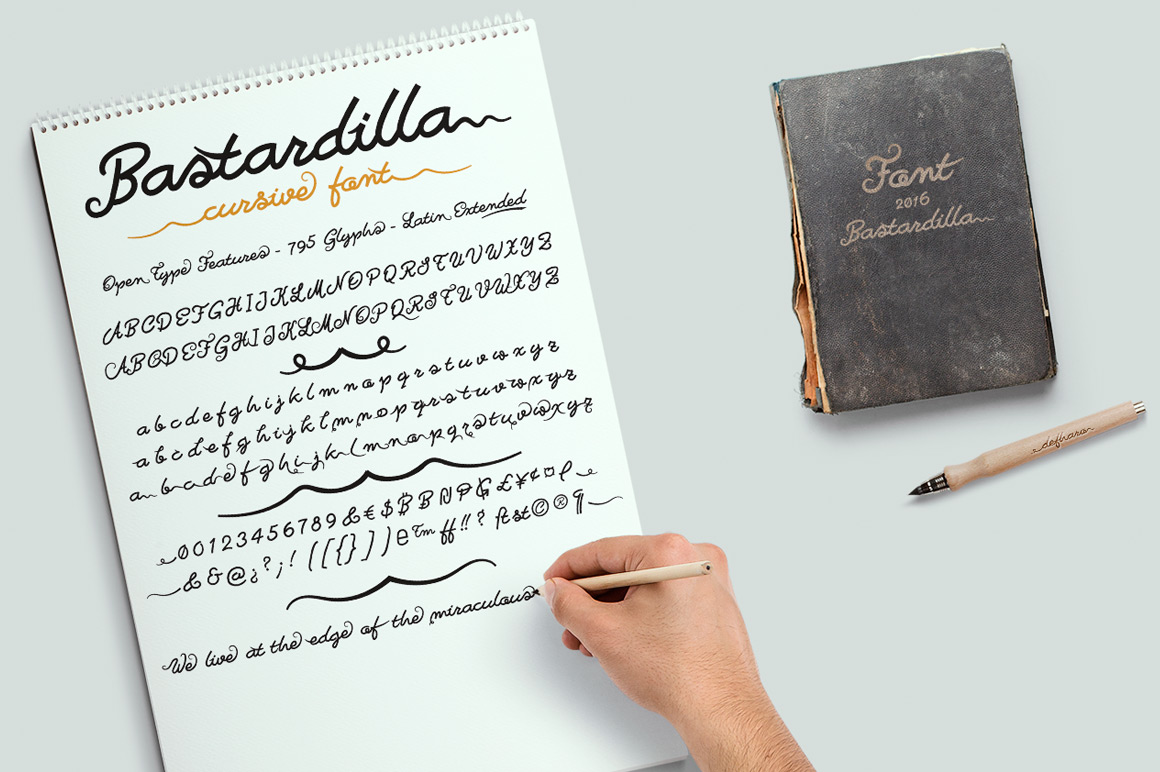 Bastardilla
cursive font
Open Type Features - 795 Glyphs - Latin Extended
ABCDEFGHIJKLMNOPQRSTUVWXYZ
ABCDEFGHIJKLMNOPQRSTUVWXYZ
abcdefghijklmnopqrstuvwxyz
abcdefghijklmnopqrstuvwxyz
abcdefghijklmnopqrstuvwxyz
00123456789&€$₿BNPG£¥¢¤ℓ
&&@¿?¡!([{}])e™ff!!?ftst©®¶
We live at the edge of the miraculous
Font
2016
Bastardilla
defharo